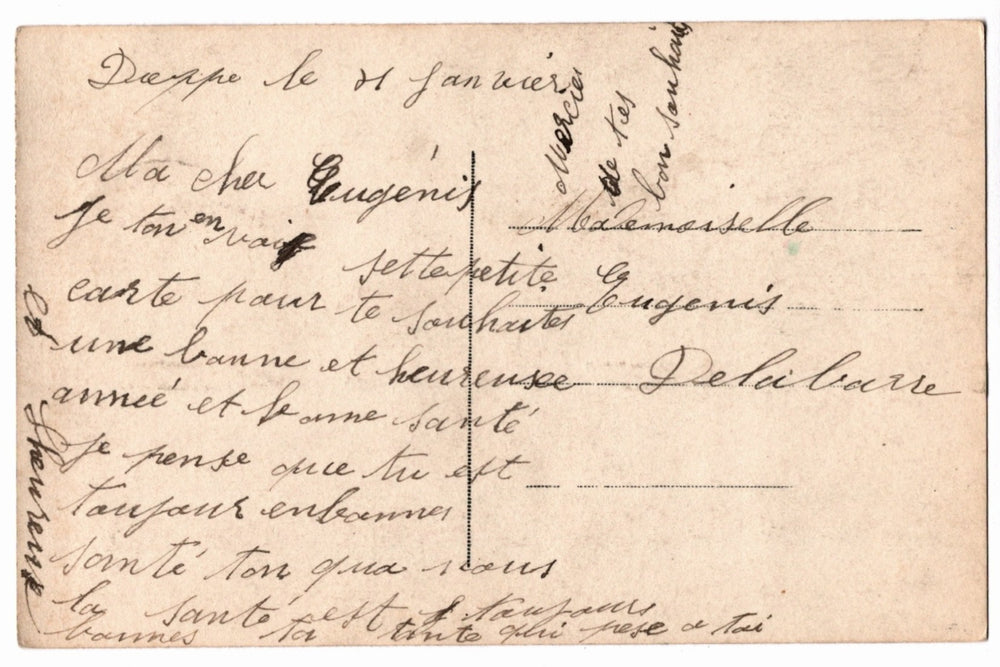 Dieppe le 21 Janvier
Ma cher Eugénis
Je ton en vais
sette petite
carte pour te souhaites
une bonne et heureuse
année et bonne santé
je pense que tu est
toujour enbonnes
santé ton qua nous
la santé est toujours
bonnes ta tinte qui pese a toi
Mercies
de tes
bon souhait
Mademoiselle
Eugenis
Delabarre